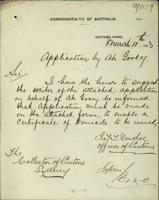 COMMONWEALTH OF AUSTRALIA.
CUSTOMS HOUSE,
March 11th
Application by Ah Gooey
Sir
I have the honor to suggest
the writer of the attached application
on behalf of Ah Gooey be informed
that application must be made
on the attached form, to enable a
certificate of domicile to be issued
Officer of Customs
The
Collector of Customs
Sydney